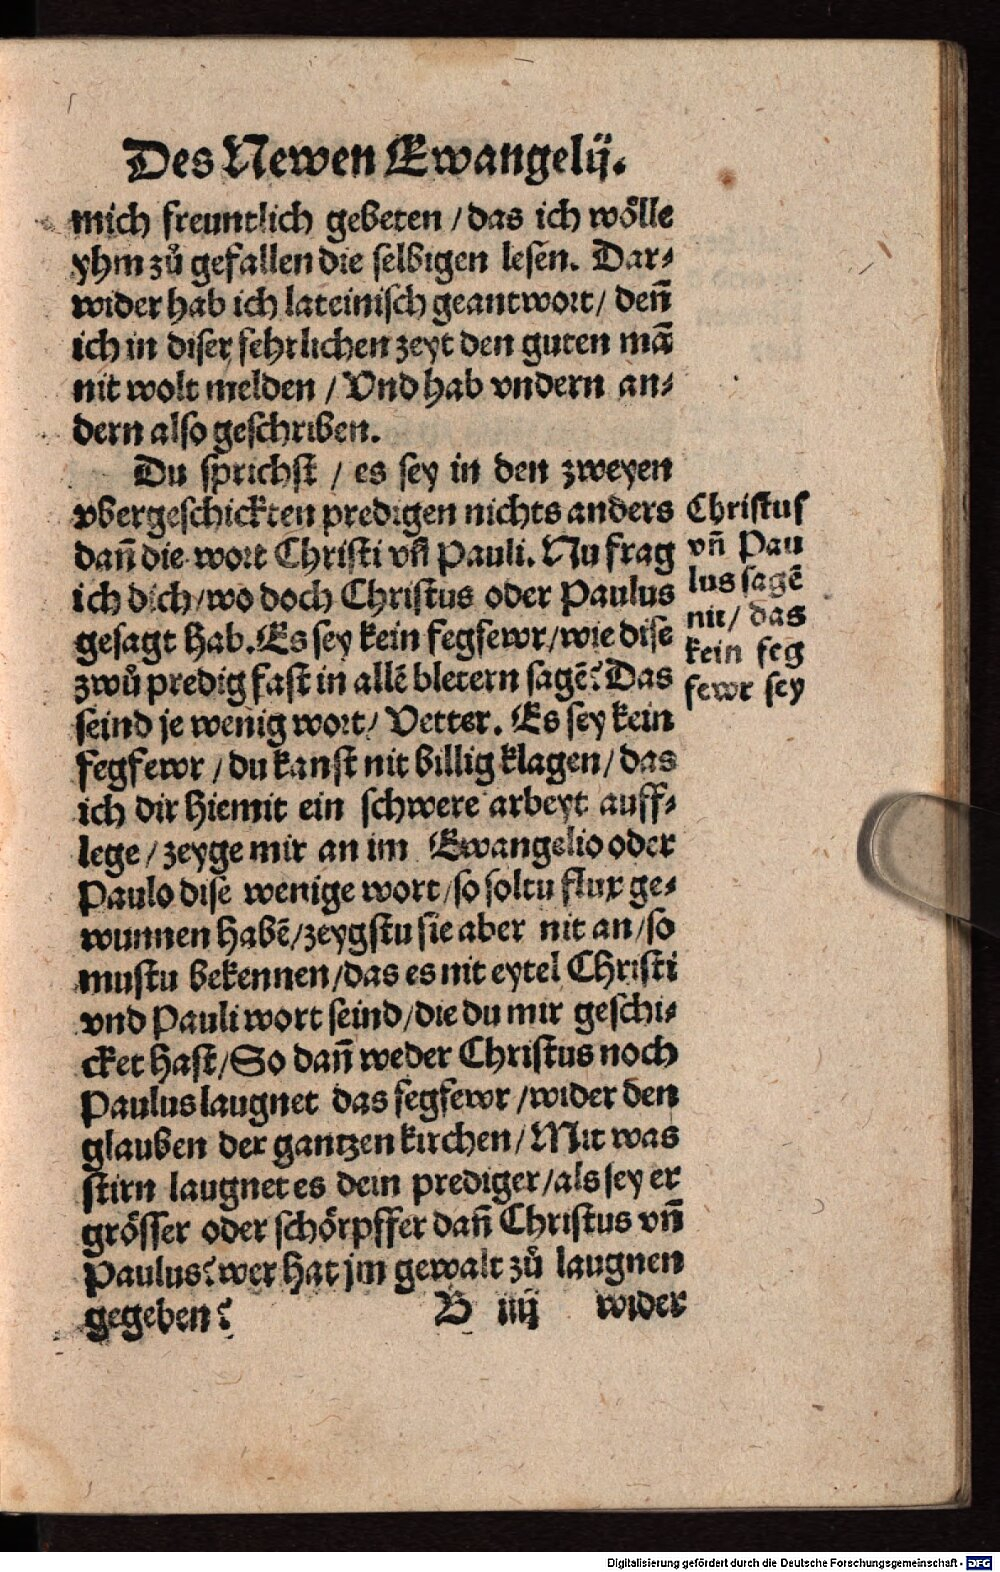 Des Newen Ewangelij.
mich freuntlich gebeten / das ich wölle
yhm zů gefallen die selbigen lesen. Dar⸗
wider hab ich lateinisch geantwort / deñ
ich in diser fehrlichen zeyt den guten mã
nit wolt melden / Vnd hab vndern an⸗
dern also geschriben.
Du sprichst / es sey in den zweyen
vbergeschickten predigen nichts anders
dañ die wort Christi vñ Pauli. Nu frag
ich dich / wo doch Christus oder Paulus
gesagt hab. Es sey kein fegfewr / wie dise
zwů predig fast in allẽ bletern sagẽ? Das
seind je wenig wort / Vetter. Es sey kein
fegfewr / du kanst nit billig klagen / das
ich dir hiemit ein schwere arbeyt auff⸗
lege / zeyge mir an im Ewangelio oder
Paulo dise wenige wort / so soltu flux ge⸗
wunnen habẽ / zeygstu sie aber nit an / so
mustu bekennen / das es nit eytel Christi
vnd Pauli wort seind / die du mir geschi⸗
cket hast / So dañ weder Christus noch
Paulus laugnet das fegfewr / wider den
glauben der gantzen kirchen / Mit was
stirn laugnet es dein prediger / als sey er
grösser oder schörpffer dañ Christus vñ
Paulus? wer hat jm gewalt zů laugnen
gegeben?
B iiij wider
Christus
vñ Pau
lus sagẽ
nit / das
kein feg
fewr sey
Digitalisierung gefördert durch die Deutsche Forschungsgemeinschaft - DFG